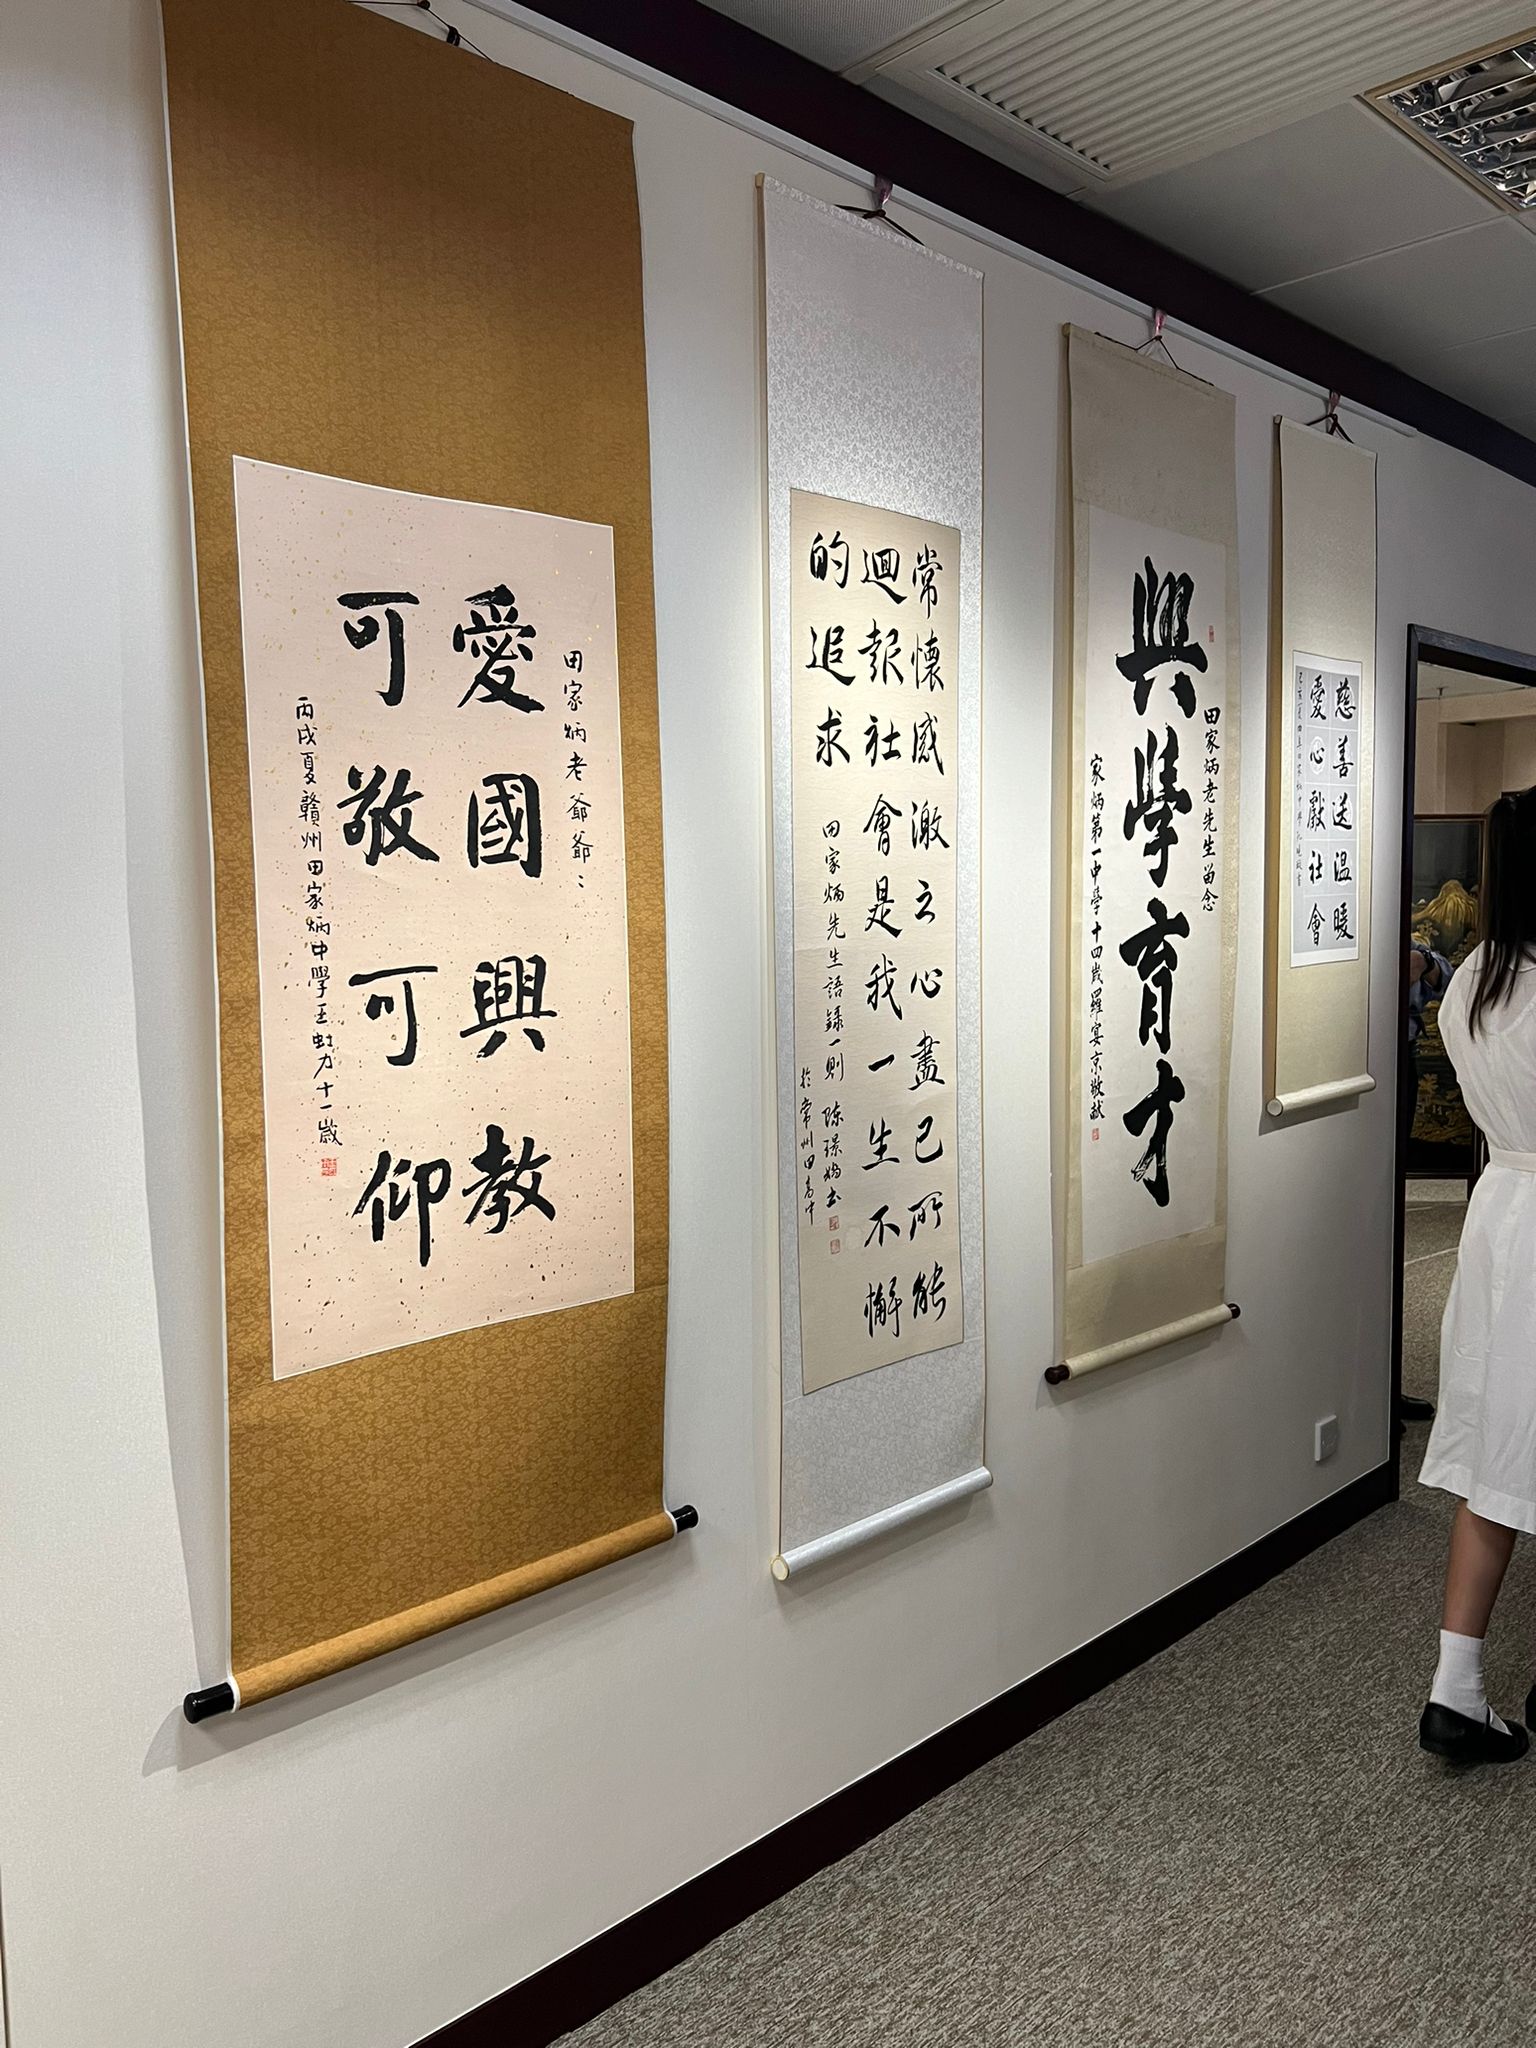 田家炳老爺爺：
愛國興教
可敬可仰
丙戌夏贛州田家炳中學王虹力十一歲
常懷感激之心盡己所能
迴報社會是我一生不懈
的追求
田家炳先生語錄一則 陳璟嫣書
於常州田高中
田家炳老先生留念
興學育才
家炳第一中學十四歲羅宴京敬献
慈善送温暖
愛心獻社會